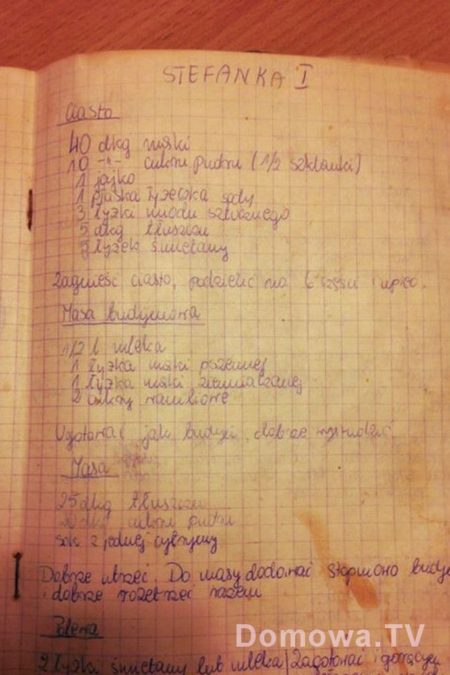 STEFANKA I
Ciasto
40 dkg mąki
10 -"- cukru pudru (1/2 szklanki)
1 jajko
1 płaska łyżeczka sody
3 łyżki miodu sztucznego
5 dkg tłuszczu
5 łyżek śmietany
Zagnieść ciasto, podzielić na części i upiec.
Masa budyniowa
1/2 l mleka
1 łyżka mąki pszennej
1 łyżka mąki ziemniaczanej
2 cukry waniliowe
Ugotować jak budyń, dobrze wystudzić.
Masa
25 dkg tłuszczu
20 dkg cukru pudru
sok z jednej cytryny
Dobrze utrzeć. Do masy dodawać stopniowo
i dobrze rozetrzeć razem
Polewa
Domowa.TV
2 łyżki śmietany lub mleka / zagotować